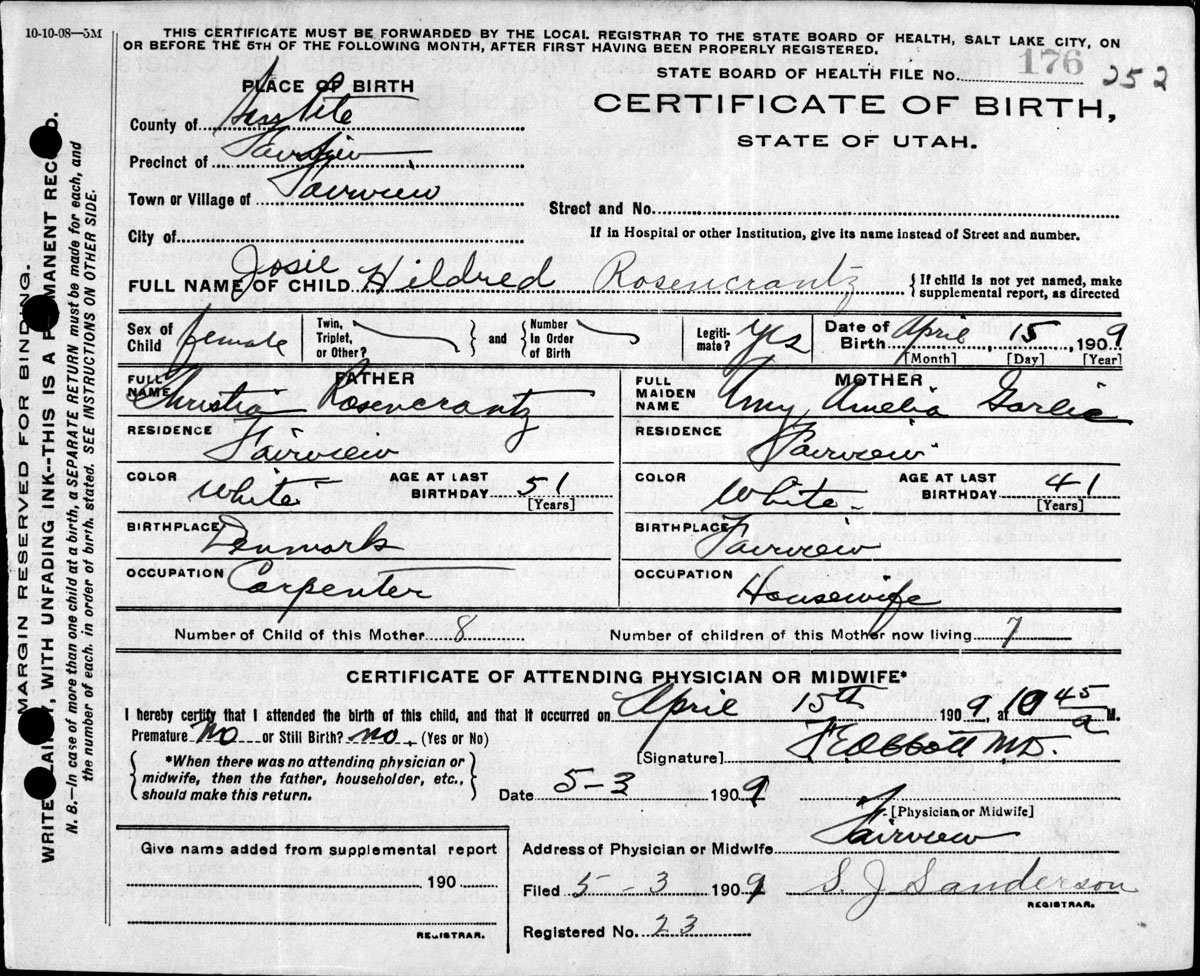 10-10-08—5M
THIS CERTIFICATE MUST BE FORWARDED BY THE LOCAL REGISTRAR TO THE STATE BOARD OF HEALTH, SALT LAKE CITY, ON
OR BEFORE THE 5TH OF THE FOLLOWING MONTH, AFTER FIRST HAVING BEEN PROPERLY REGISTERED.
PLACE OF BIRTH
STATE BOARD OF HEALTH FILE No. 176 252
CERTIFICATE OF BIRTH,
STATE OF UTAH.
County of
Precinct of Fairview
Town or Village of Fairview
Street and No.
City of
If in Hospital or other Institution, give its name instead of Street and number.
FULL NAME OF CHILD Josie Hildred Rosencrantz
{ If child is not yet named, make
supplemental report, as directed
Sex of Child female
Twin, Triplet, or Other? } and { Number In Order of Birth
Legiti-mate? Yes
Date of Birth April, 15, 1909
[Month] [Day] [Year]
FATHER
FULL NAME Christian Rosencrantz
RESIDENCE Fairview
COLOR White AGE AT LAST BIRTHDAY 51 [Years]
BIRTHPLACE Denmark
OCCUPATION Carpenter
MOTHER
FULL MAIDEN NAME Amy Amelia Garlic
RESIDENCE Fairview
COLOR White AGE AT LAST BIRTHDAY 41 [Years]
BIRTHPLACE Fairview
OCCUPATION Housewife
Number of Child of this Mother 8 Number of children of this Mother now living 7
CERTIFICATE OF ATTENDING PHYSICIAN OR MIDWIFE*
I hereby certify that I attended the birth of this child, and that it occurred on April 15th 1909, at 10 45 a M.
Premature No or Still Birth? no. (Yes or No)
[Signature] Abbott M.D.
{ *When there was no attending physician or
midwife, then the father, householder, etc.,
should make this return. }
Date 5-3 1909
[Physician or Midwife]
Address of Physician or Midwife Fairview
Filed 5-3 1909 S. J. Sanderson
REGISTRAR.
Registered No. 23
Give name added from supplemental report
190
REGISTRAR.
MARGIN RESERVED FOR BINDING.
WRITE PLAINLY, WITH UNFADING INK--THIS IS A PERMANENT RECORD.
N. B.—In case of more than one child at a birth, a SEPARATE RETURN must be made for each, and
the number of each, in order of birth, stated. SEE INSTRUCTIONS ON OTHER SIDE.